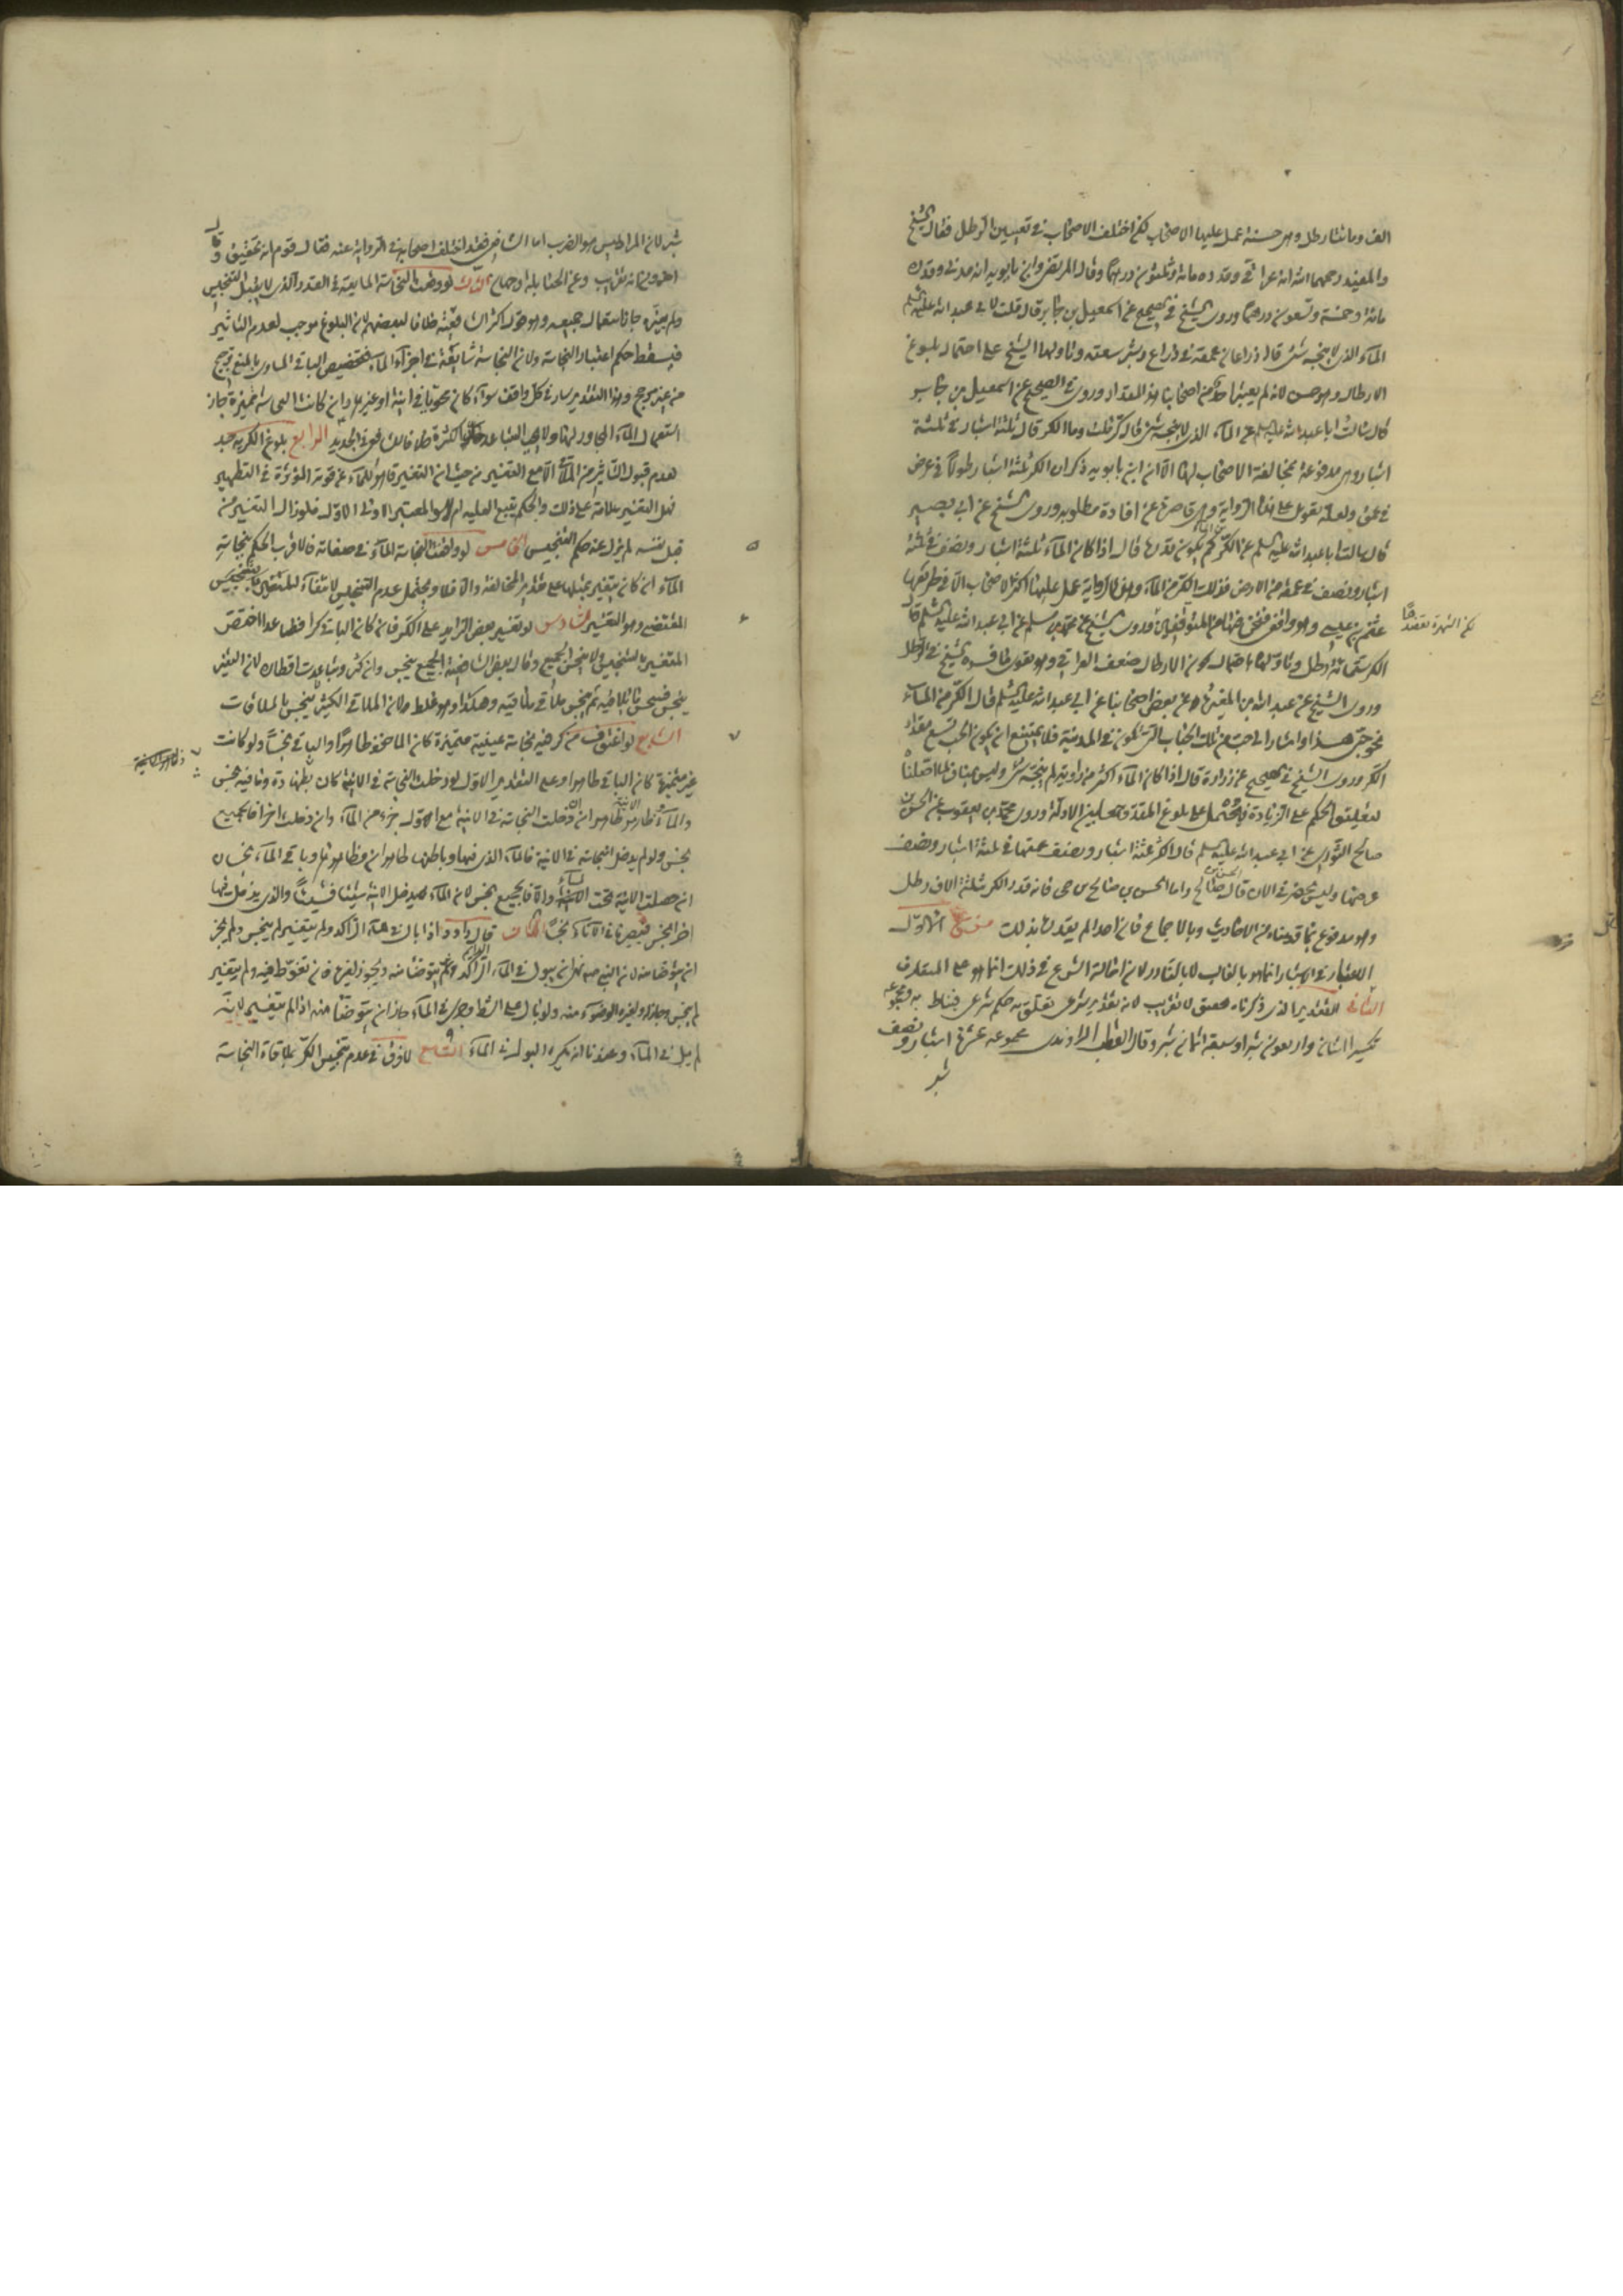 الف ومائتا رطل وهي حسنة عمل عليها الاصحاب لكن اختلف الاصحاب في تعيين الرطل فقال الشيخ
والمفيد رحمهما الله انه عراقي وقدره مائة وثلثون درهما وقال المرتضى وابن بابويه انه مدني وقدره
مائة وخمسة وتسعون درهما وروى الشيخ في الصحيح عن اسمعيل بن جابر قال قلت لابي عبد الله عليه السلم
الماء الذي لا ينجسه شئ قال ذراعان عمقه في ذراع وشبر سعته وتاولها الشيخ على احتمال بلوغ
الارطال وهو حسن لانه لم يعتبر احد من اصحابنا هذا المقدار وروى في الصحيح عن اسمعيل بن جابر
قال سالت ابا عبد الله عليه السلم عن الماء الذي لا ينجسه شئ قال كر قلت وما الكر قال ثلثة اشبار في ثلثة
اشبار وهي مدفوعة بمخالفة الاصحاب لها الا ان ابن بابويه ذكر ان الكر ثلثة اشبار طولا في عرض
في عمق ولعله تعويل على هذه الرواية وهي قاصرة عن افادة مطلوبه وروى الشيخ عن ابي بصير
قال سالت ابا عبد الله عليه السلم عن الكر من الماء كم يكون قدره قال اذا كان الماء ثلثة اشبار ونصف في ثلثة
اشبار ونصف في عمقه من الارض فذلك الكر من الماء وهذه الرواية عمل عليها اكثر الاصحاب الا في طريقها
عثمن بن عيسى وهو واقفي لكن الشهرة تعضدها وروى الشيخ عن محمد بن مسلم عن ابي عبد الله عليه السلم قال
الكر ستمائة رطل وتاولها باحتمال كون الارطال ضعف العراقي وهو يقوى ما فسره الشيخ في الرطل
وروى الشيخ عن عبد الله بن المغيرة عن بعض اصحابنا عن ابي عبد الله عليه السلم قال الكر من الماء
نحو حبي هذا واشار الى حب من تلك الحباب التي تكون في المدينة فلا يمتنع ان يكون الحب يسع مقدار
الكر وروى الشيخ في الصحيح عن زرارة قال اذا كان الماء اكثر من راوية لم ينجسه شئ وليس بمناف لما اصلناه
لتعليق الحكم على الزيادة فيحمل على بلوغ المقدر جمعا بين الادلة وروى محمد بن يعقوب عن الحسن بن
صالح الثوري عن ابي عبد الله عليه السلم قال الكر ثلثة اشبار ونصف عمقها في ثلثة اشبار ونصف
عرضها وليس يحضرني الان قال واما الحسن بن صالح بن حي فانه قدر الكر بثلثة الاف رطل
وهو مدفوع بما قدمناه من الاحاديث وبالاجماع فان احدا لم يقدره بذلك فروع الاول
الاعتبار في الاشبار انما هو بالغالب لا بالنادر لان احالة الشرع في ذلك انما هو على المتعارف
الثاني التقدير الذي ذكرناه تحقيق لا تقريب لانه تقدير شرعي تعلق به حكم شرعي فيناط به ومجموعه
تكسير اثنان واربعون شبرا وسبعة اثمان شبر وقال القطب الراوندي مجموعه عشرة اشبار ونصف
شبر
لكن الشهرة تعضدها
شبر لان المراد ليس هو الضرب اما الشافعي فقد اختلف اصحابه في الرواية عنه فقال قوم انه تحقيق وقال
اخرون انه تقريب وعن الحنابلة وجهان الثالث لو وقعت النجاسة المايعة في القدر الذي لا يقبل التنجيس
ولم يغيره جاز استعمال جميعه وهو قول اكثر الشافعية خلافا لبعضهم لان البلوغ موجب لعدم التاثير
فيسقط حكم اعتبار النجاسة ولان النجاسة شايعة في اجزاء الماء فتخصيص الباقي المساوي بالمنع ترجيح
من غير مرجح وهذا التقدير سار في كل واقف سواء كان محويا في انية او غير وان كانت النجاسة متميزة جاز
استعمال الماء المجاور لها ولا يجب التباعد كثرة خلافا للشافعي في الجديد الرابع بلوغ الكرية حد
لعدم قبول التاثير من الملاقي الا مع التغيير من حيث ان التغيير قاهر للماء عن قوته المؤثرة في التطهير
فهل التغيير علامة على ذلك والحكم يتبع الغلبة ام هو المعتبر الاولى الاول فلو زال التغيير من
قبل نفسه لم يزل عنه حكم التنجيس الخامس لو وافقت النجاسة الماء في صفاته فالاقرب الحكم بنجاسة
الماء ان كان يتغير بمثلها على تقدير المخالفة والا فلا ويحتمل عدم التنجيس لانتفاء المقتضي للتنجيس
المقتضي وهو التغيير السادس لو تغير بعض الزايد على الكر فان كان الباقي كرا فصاعدا اختص
المتغير بالتنجيس ولا ينجس الجميع وقال بعض الشافعية الجميع ينجس وان كثر وتباعدت اقطاره لان المتغير
ينجس فينجس ما يلاقيه ثم ينجس ملاقي ملاقيه وهكذا وهو غلط لان الملاقي الكثير ينجس بالملاقات
السابع لو اغترف من كر فيه نجاسة عينية متميزة كان الماخوذ طاهرا والباقي نجسا ولو كانت
غير متميزة كان الباقي طاهرا وعلى التقدير الاول لو دخلت النجاسة في الانية كان بطنها وما فيه نجس
والماء وظاهر الانية طاهر ان دخلت النجاسة في الانية مع اول جزء من الماء وان دخلت اخرا فالجميع
نجس ولو لم يدخل النجاسة في الانية فالماء الذي فيها وباطنها طاهران وظاهرها وباقي الماء نجسان
ان حصلت الانية تحت الماء والا فالجميع نجس لان الماء يدخل الانية شيئا فشيئا والذي يدخل فيها
اخرا نجس فيصير ما في الاناء نجسا الثامن قال داود اذا بال في الماء الراكد ولم يتغير لم ينجس ولم يجز
ان يتوضا منه لان النبي صم نهى ان يبول في الماء الراكد الدايم ثم يتوضا منه ويجوز لغيره فان تغوط فيه ولم يتغير
لم ينجس وجاز له ولغيره الوضوء منه ولو بال على الشط وجرى في الماء جاز ان يتوضا منه اذا لم يتغير لانه
لم يبل في الماء وعندنا انه يكره البول في الماء التاسع لا فرق في عدم تنجيس الكر بملاقاة النجاسة